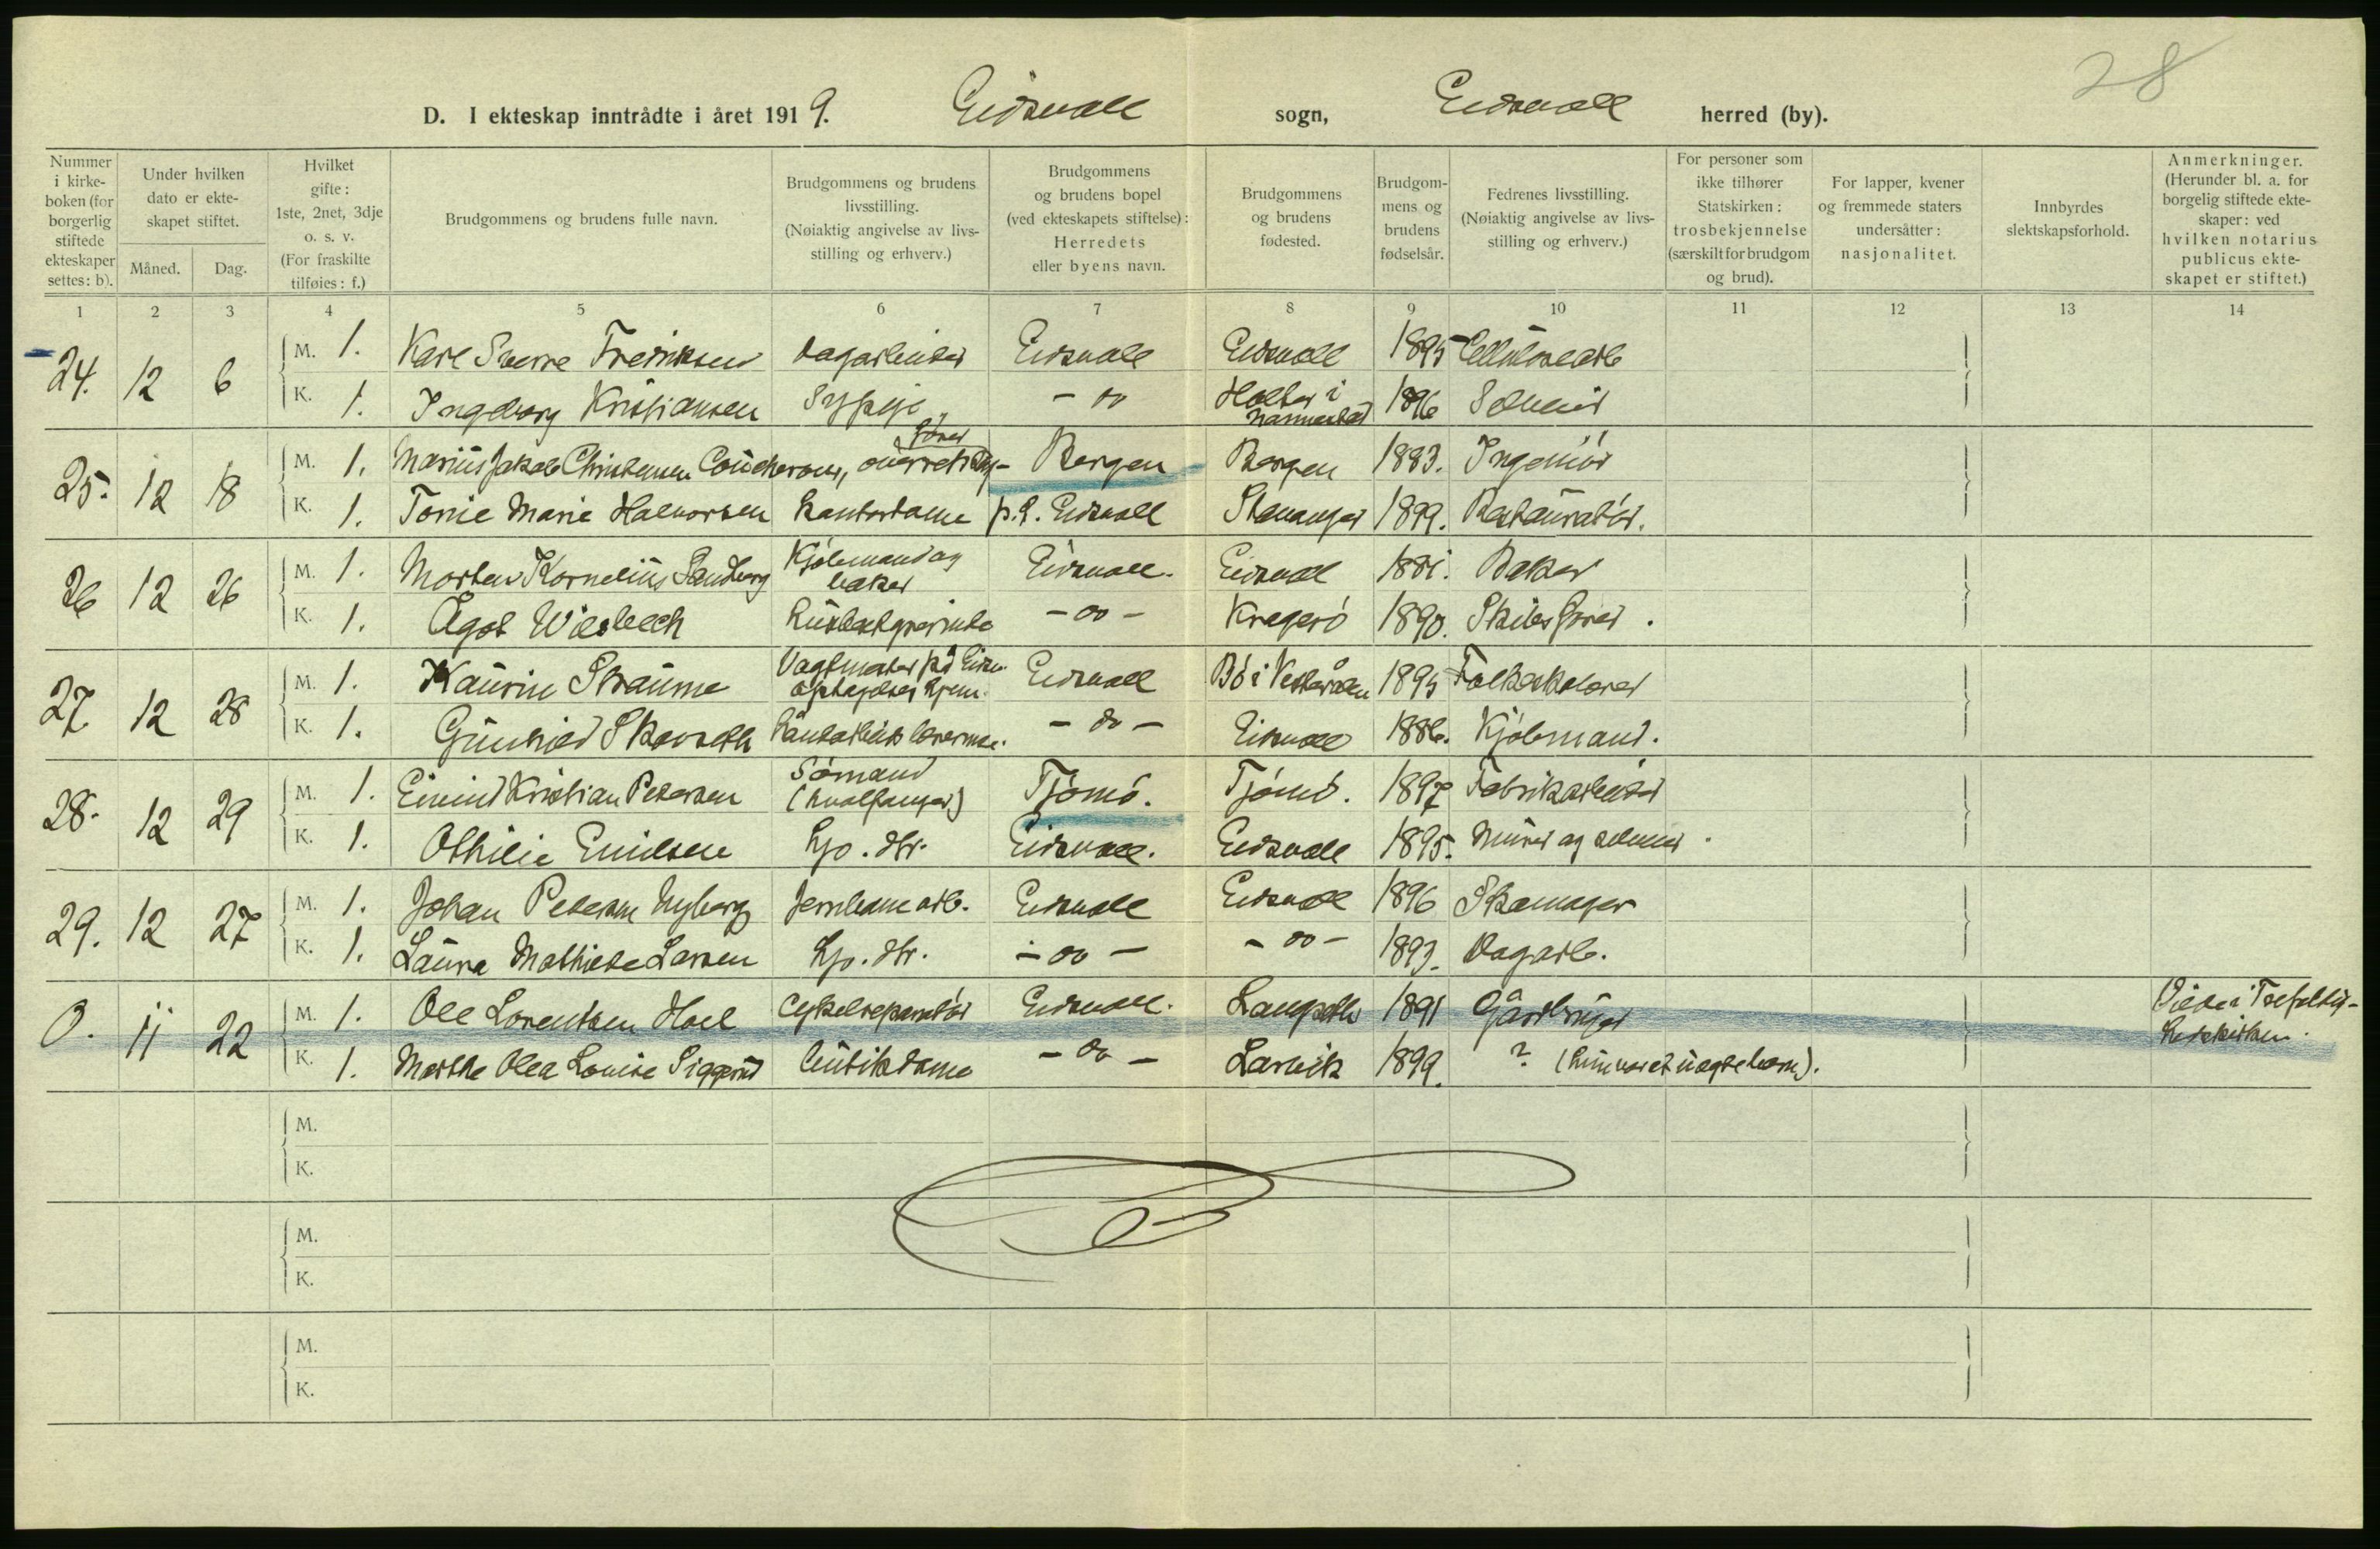 28
D. I ekteskap inntrådte i året 1919. Eidsvoll sogn, Eidsvoll herred (by).
Nummer i kirke-boken (for borgerlig stiftede ekteskaper settes: b).
Under hvilken dato er ekte-skapet stiftet.
Måned. Dag.
Hvilket gifte: 1ste, 2net, 3dje o. s. v. (For fraskilte tilføies: f.)
Brudgommens og brudens fulle navn.
Brudgommens og brudens livsstilling. (Nøiaktig angivelse av livs-stilling og erhverv.)
Brudgommens og brudens bopel (ved ekteskapets stiftelse): Herredets eller byens navn.
Brudgommens og brudens fødested.
Brudgom-mens og brudens fødselsår.
Fedrenes livsstilling. (Nøiaktig angivelse av livs-stilling og erhverv.)
For personer som ikke tilhører Statskirken: trosbekjennelse (særskilt for brudgom og brud).
For lapper, kvener og fremmede staters undersåtter: nasjonalitet.
Innbyrdes slektskapsforhold.
Anmerkninger. (Herunder bl. a. for borgelig stiftede ekte-skaper: ved hvilken notarius publicus ekte-skapet er stiftet.)
1 2 3 4 5 6 7 8 9 10 11 12 13 14
24. 12 6 M. 1. Karl Sverre Fredriksen Dagarbeider Eidsvoll Eidsvoll 1895 Cellulosearb
K. 1. Ingeborg Kristiansen Sypige - do Holter i Nannestad 1896 Schmied
25. 12 18 M. 1. Marius Jakob Christensen Coucheron, overretssagfører Bergen Bergen 1883. Ingeniør
K. 1. Tonie Marie Halvorsen Kontordame p.t. Eidsvoll Stavanger 1899. Restauratør.
26 12 26 M. 1. Morten Kornelius Sandberg Kjøbmand og baker Eidsvoll. Eidsvoll 1881. Baker
K. 1. Ågot Wiesbech Husbestyrerinde - do - Kragerø 1890. Skibsfører.
27. 12 28 M. 1. Kaurin Straume Vagtmester på Eidsv. Eidsvoll Bø i Vesterålen 1895 Folkeskolelærer
K. 1. Gunhild Skarseth - do - Eidsvoll 1886. Kjøbmand.
28. 12 29 M. 1. Eivind Kristian Petersen Sømand (hvalfanger) Tjømø. Tjømø. 1897 Fabrikarbeider
K. 1. Othilie Emilsen Hjv. dtr. Eidsvoll. Eidsvoll 1895. Murer og
29. 12 27 M. 1. Johan Petersen Nyberg Jernbanearb. Eidsvoll Eidsvoll 1896 Skomager
K. 1. Laura Mathilde Larsen Hjv. dtr. - do - - do - 1893. Dagarb.
O. 11 22 M. 1. Ole Lorentsen Hoel Cykelreparatør Eidsvoll. Langseth 1891 Gårdbruger Viede i Trefoldig-hetskirken.
K. 1. Marthe Olea Louise Siggerud Butikdame - do - Larvik 1899. ? (hun var et uægte barn).
M.
K.
M.
K.
M.
K.